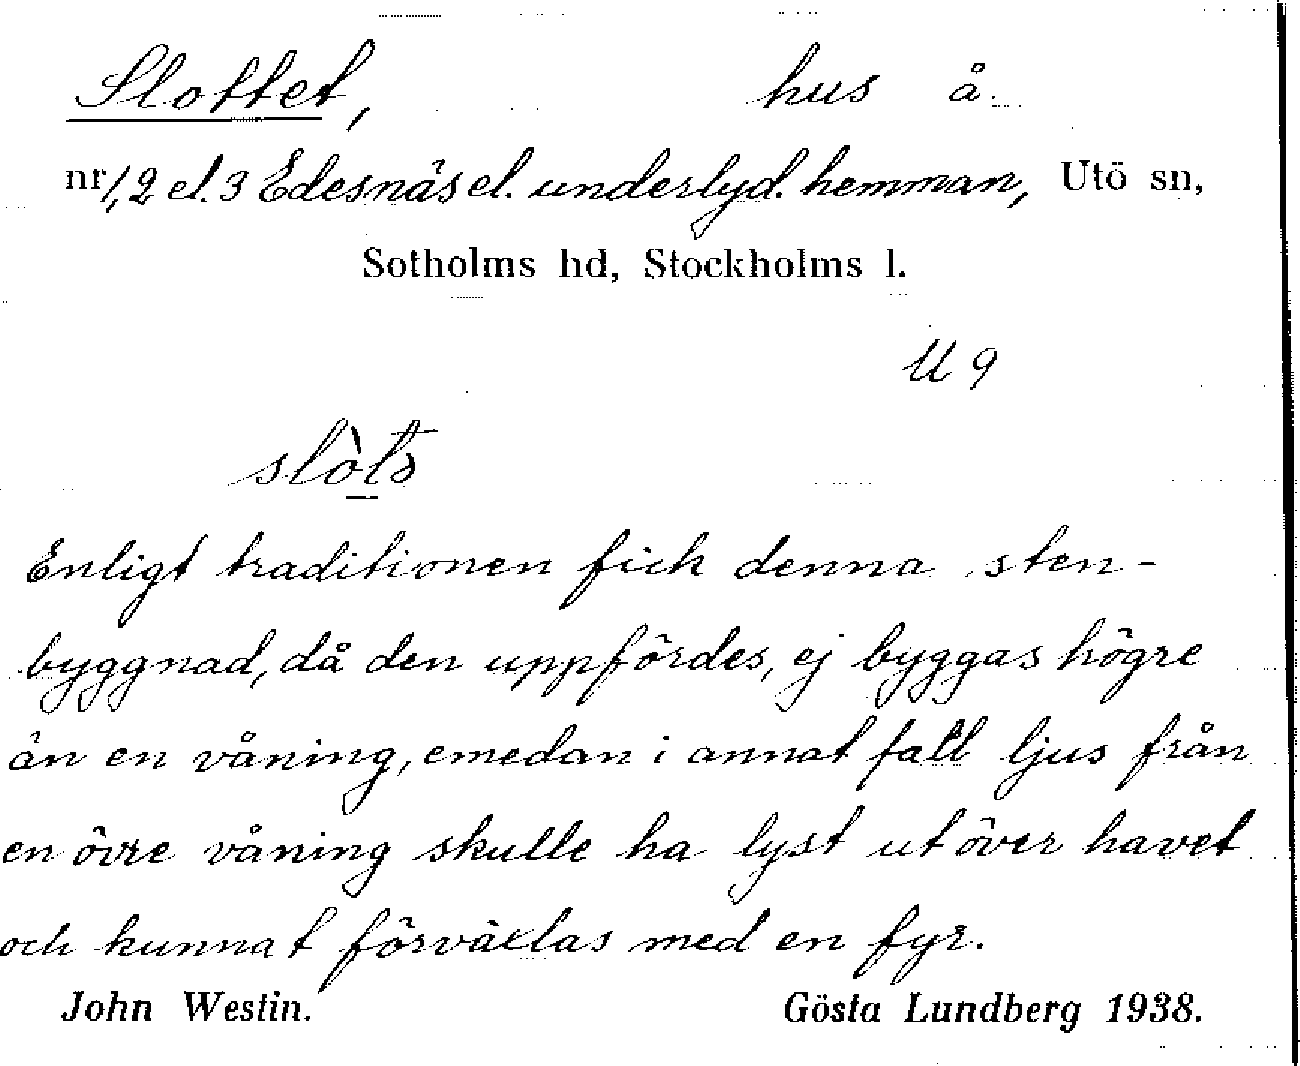 Slottet, hus å
nr 1, 2 el. 3 Edesnäs el. underlyd. hemman, Utö sn,
Sotholms hd, Stockholms l.
U 9
slòtə
Enligt traditionen fick denna sten-
byggnad, då den uppfördes, ej byggas högre
än en våning, emedan i annat fall ljus från
en övre våning skulle ha lyst ut över havet
och kunnat förväxlas med en fyr.
John Westin. Gösta Lundberg 1938.